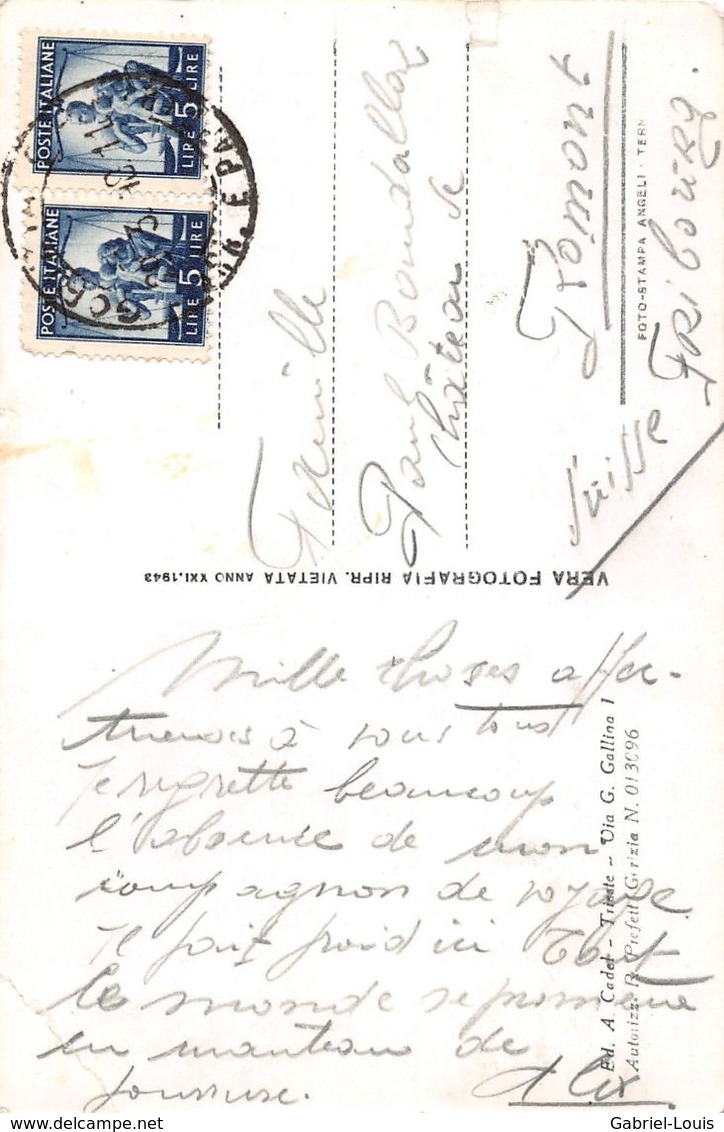 POSTE ITALIANE
LIRE 5
POSTE ITALIANE
LIRE 5
Famille
Paul
Château de
Romont
Fribourg.
Suisse
FOTO-STAMPA ANGELI - TERNI
VERA FOTOGRAFIA RIPR. VIETATA ANNO XXI.1943
Mille choses affec-
tueuses à vous tous
Je regrette beaucoup
l'absence de mon
compagnon de voyage
Il fait froid ici Tout
le monde se promène
en manteau de
fourrure. Alix
Ed. A. Cadel - Trieste - Via G. Gallina 1
Autorizz. R. Prefett. Gorizia N. 013096
Gabriel-Louis